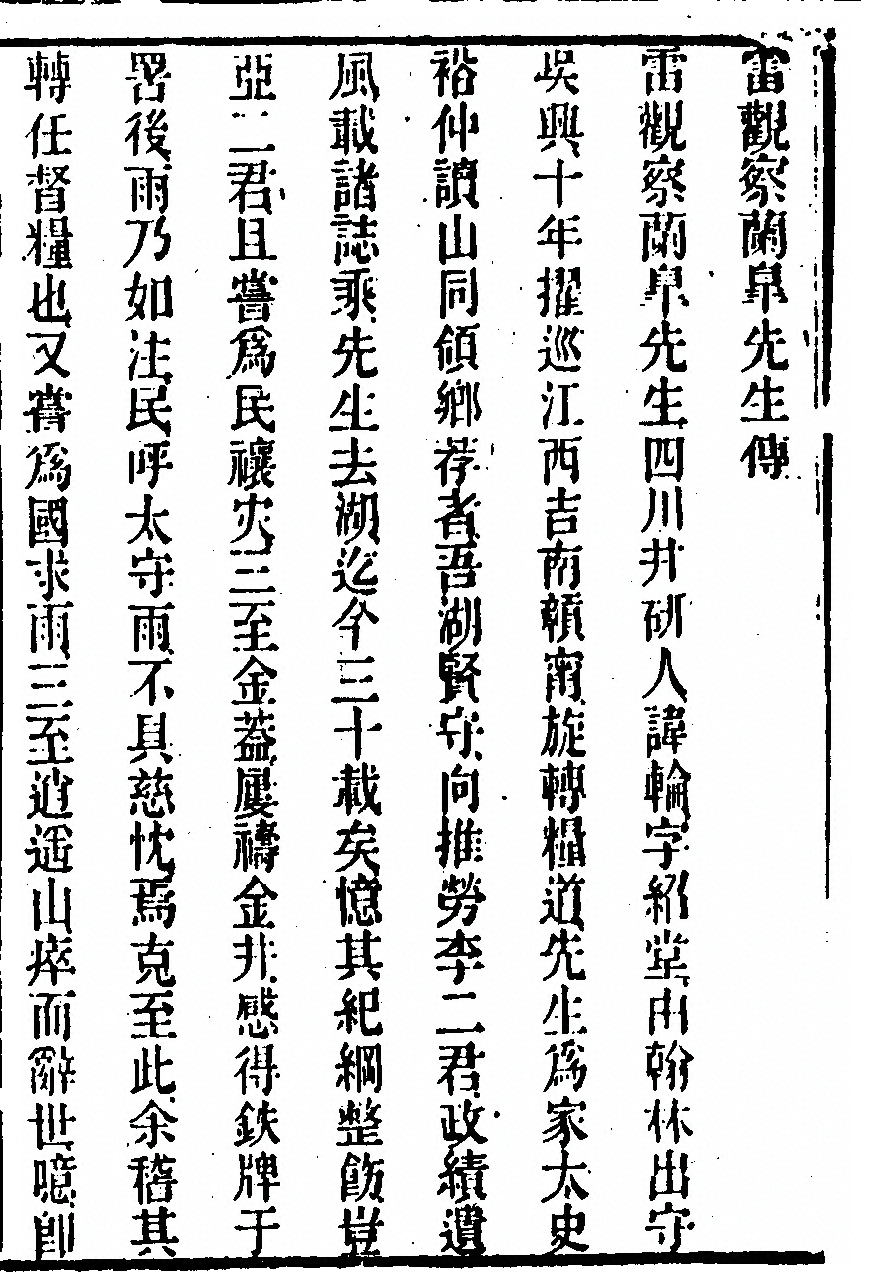 雷觀察蘭臯先生傳
雷觀察蘭臯先生四川井研人諱輪字紹堂由翰林出守
吳興十年擢巡江西吉南贛甯旋轉糧道先生爲家太史
裕仲讀山同領鄉荐者吾湖賢守向推勞李二君政績遺
風載諸誌乘先生去湖迄今三十載矣憶其紀綱整飭豈
亞二君且嘗爲民禳灾三至金葢屢禱金井感得鉄牌于
罟後雨乃如注民呼太守雨不具慈忱焉克至此余稽其
轉任督糧也又嘗爲國求雨三至逍遥山瘁而辭世噫卽